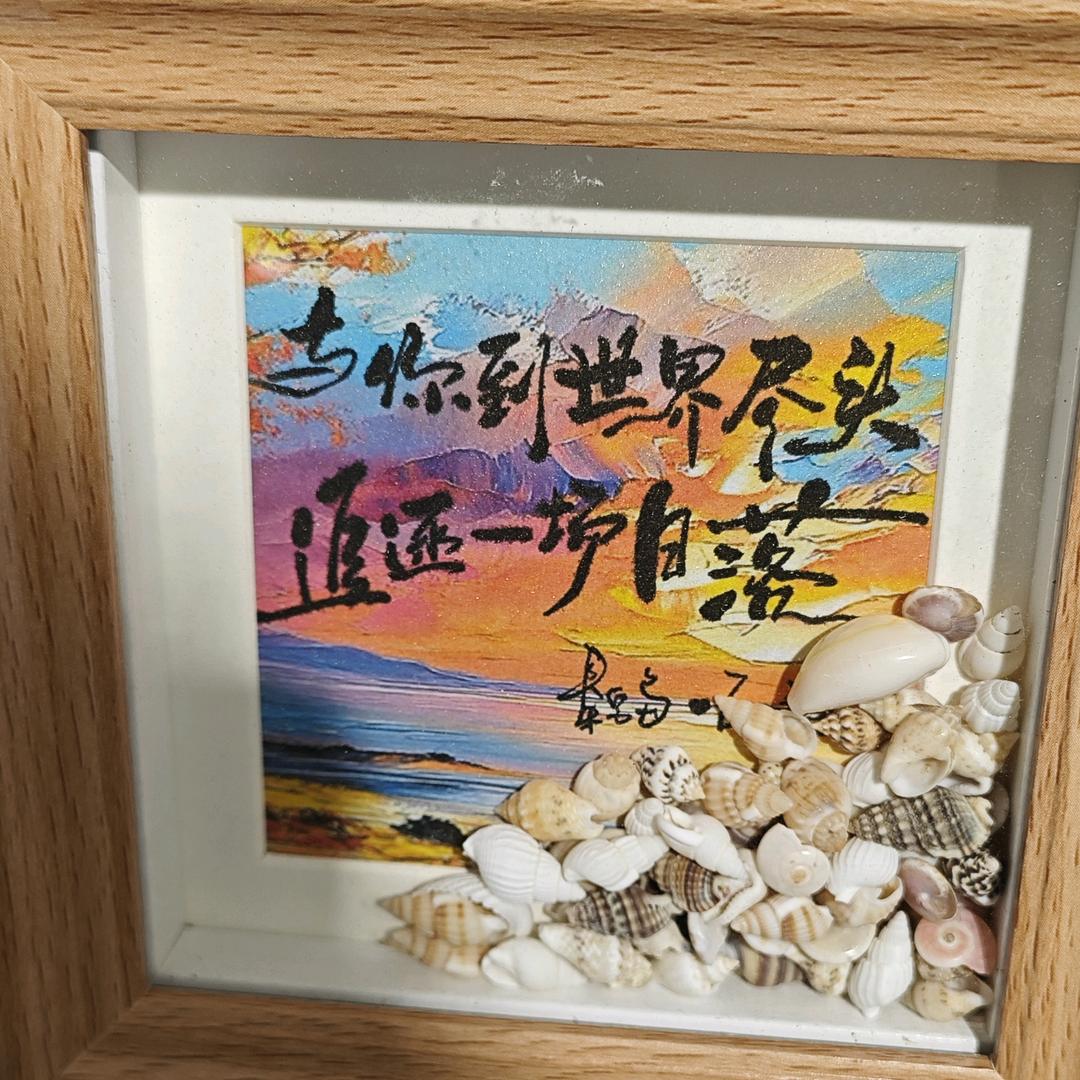 与你到世界尽头
追逐一场日落